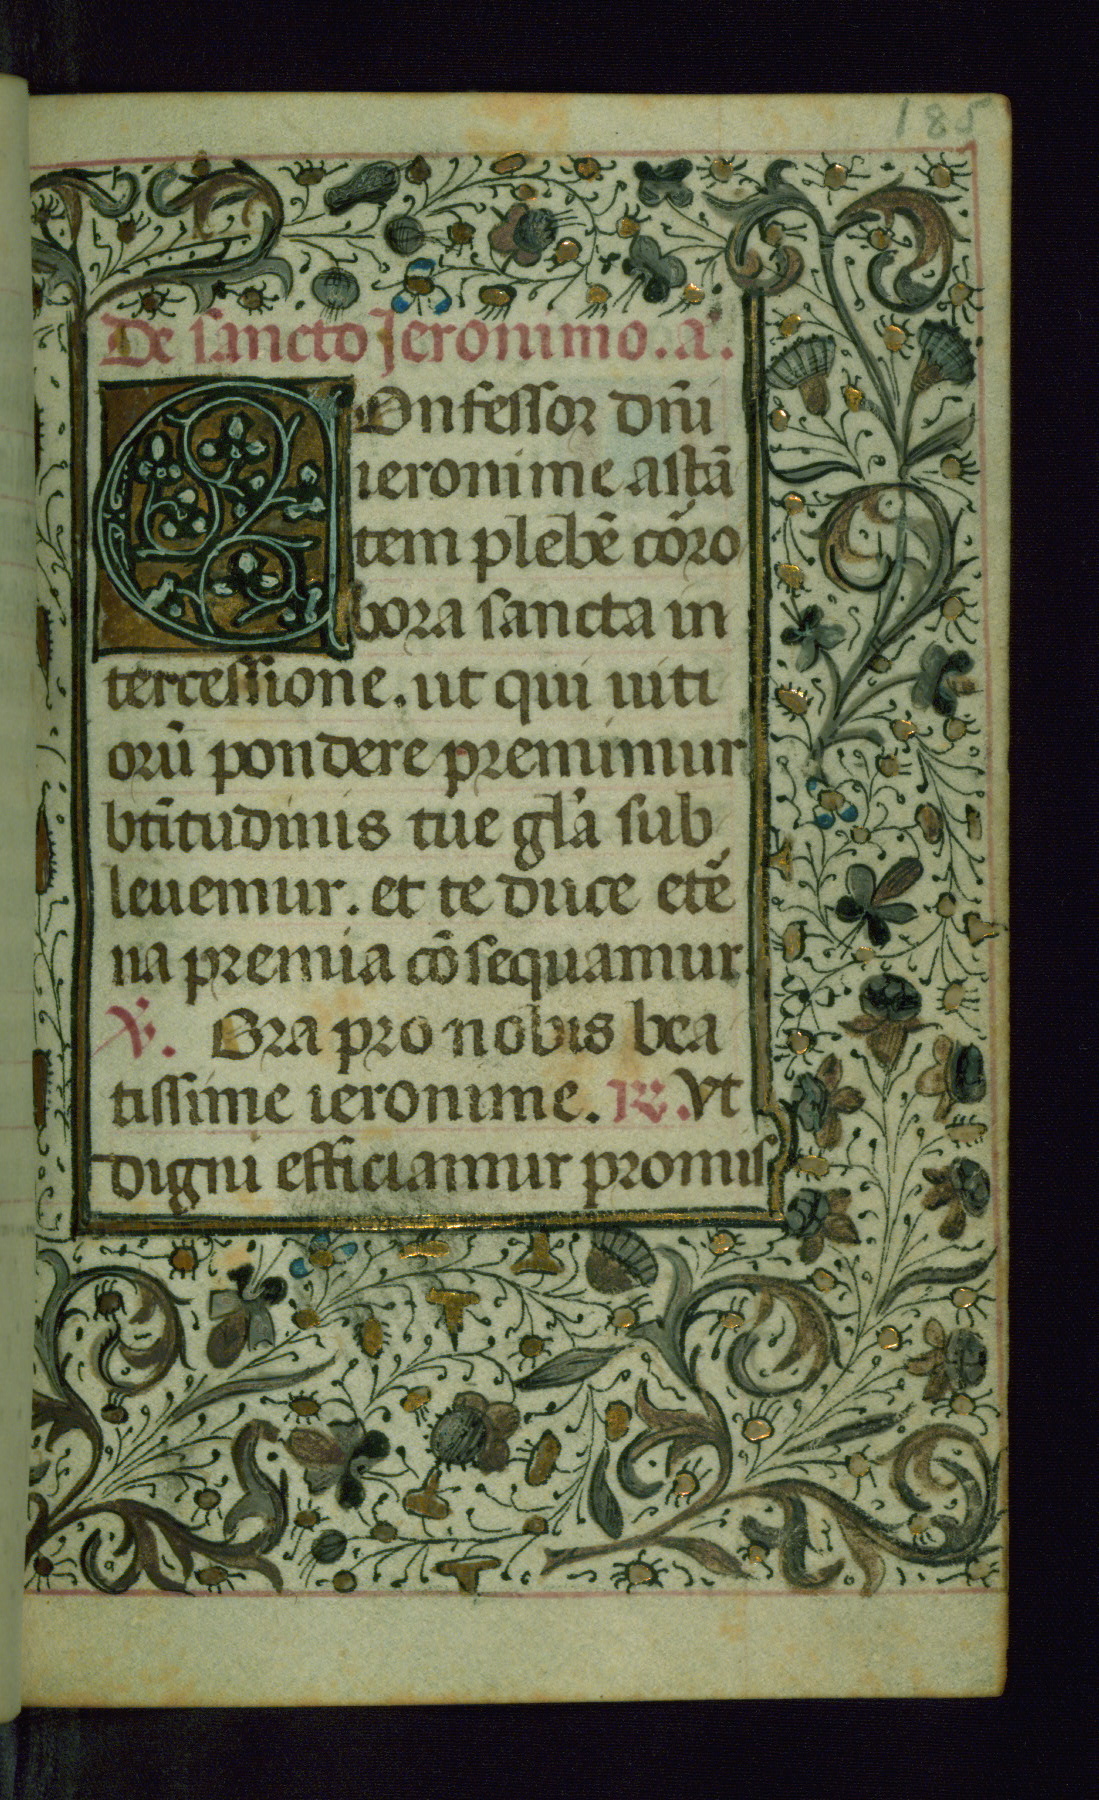 185
De sancto Jeronimo. a.
COnfessor dñi
ieronime astã
tem plebẽ cõro
bora sancta in
tercessione. ut qui uiti
orũ pondere premimur
btĩtudinis tue glã sub
leuemur. et te duce etẽ
na premia cõsequamur
℣. Ora pro nobis bea
tissime ieronime. ℟. Vt
digni efficiamur promis